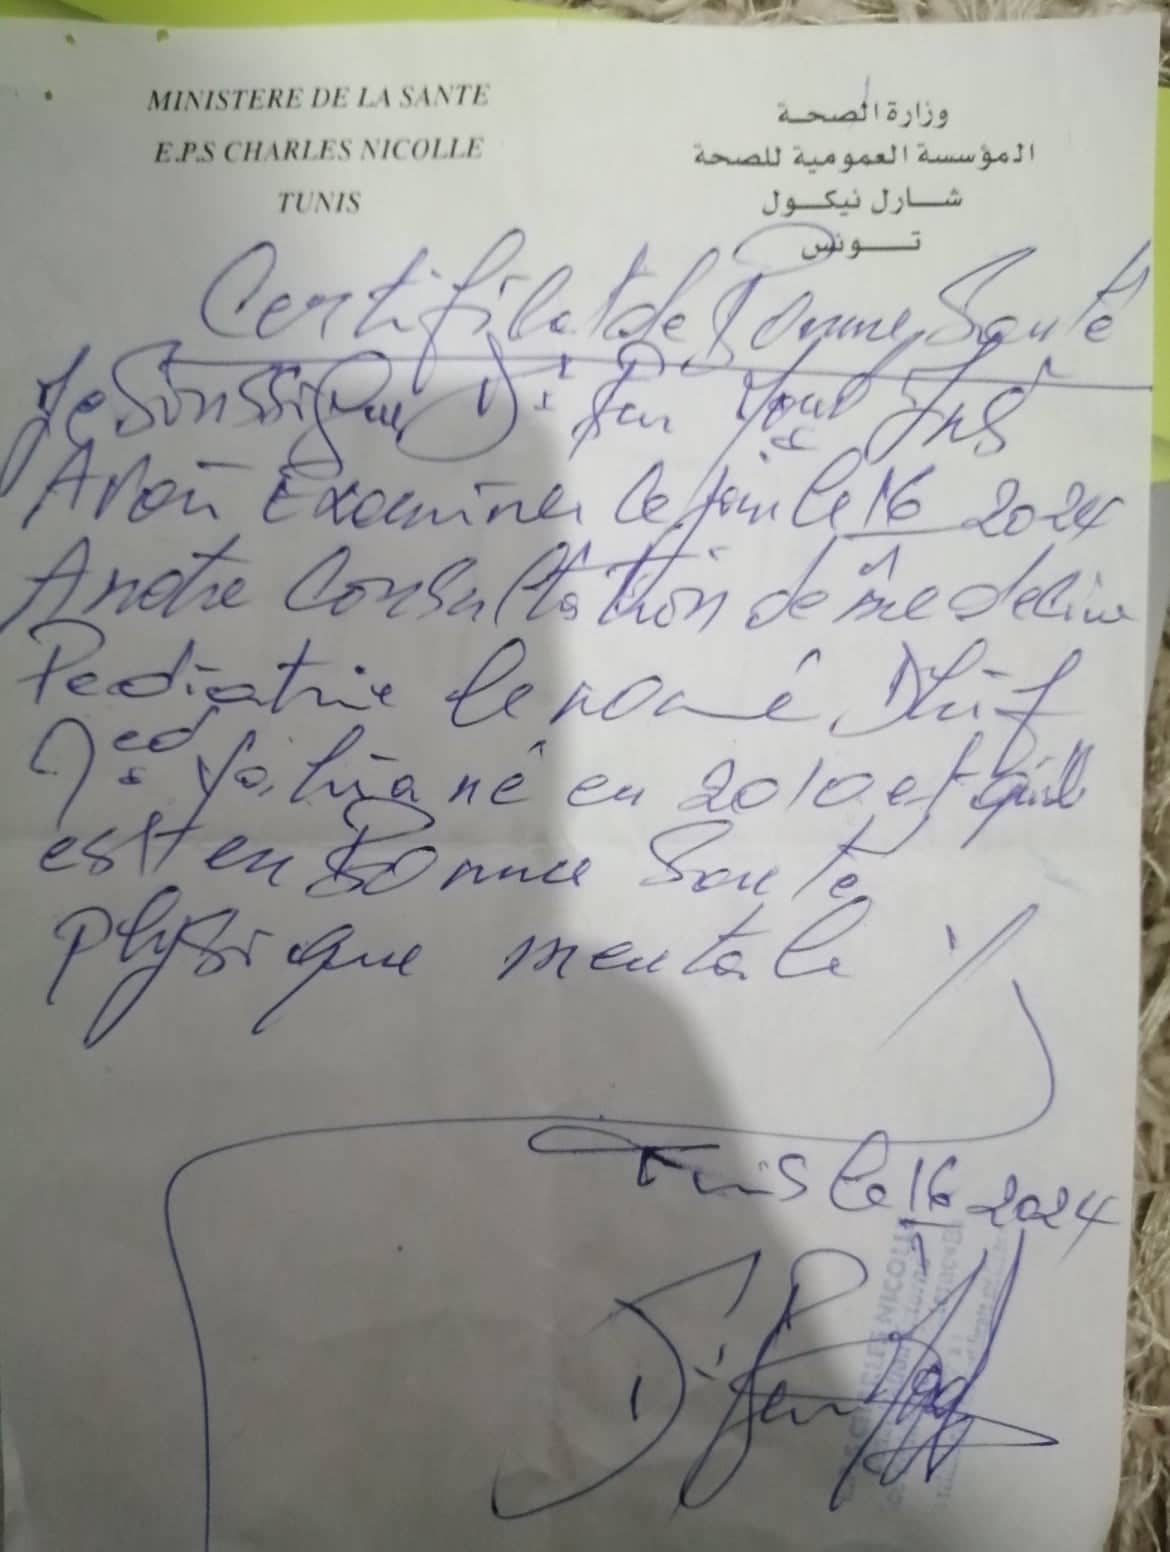 MINISTERE DE LA SANTE
E.P.S CHARLES NICOLLE
TUNIS
وزارة الصحة
المؤسسة العمومية للصحة
شارل نيكول
تونس
Certificat de Bonne Santé
Je Soussigné Dr
Avoir Examiner ce jour le 16 2024
A notre Consultation de medecine
Pediatrie le nomé Dhif
Med Yahia né en 2010 et qu'il
est en Bonne Santé
physique mentale
Tunis le 16 2024
Dr
CHARLES NICOLLE